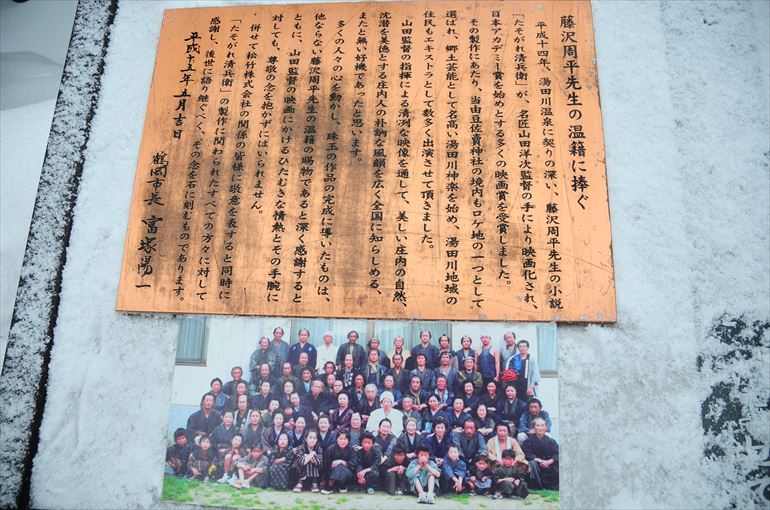 藤沢周平先生の温籍に捧ぐ
平成十四年、湯田川温泉に契りの深い、藤沢周平先生の小説
「たそがれ清兵衛」が、名匠山田洋次監督の手により映画化され、
日本アカデミー賞を始めとする多くの映画賞を受賞しました。
その製作にあたり、当由豆佐賣神社の境内もロケ地の一つとして
選ばれ、郷土芸能として名高い湯田川神楽を始め、湯田川地域の
住民もエキストラとして数多く出演させて頂きました。
山田監督の指揮による清冽な映像を通して、美しい庄内の自然、
沈潜を美徳とする庄内人の朴訥な風韻を広く全国に知らしめる、
またと無い好機であったと思います。
多くの人々の心を動かし、珠玉の作品の完成に導いたものは、
他ならない藤沢周平先生の温籍の賜物であると深く感謝すると
ともに、山田監督の映画にかけるひたむきな情熱とその手腕に
対しても、尊敬の念を抱かずにはいられません。
併せて松竹株式会社の関係の皆様に敬意を表すると同時に
「たそがれ清兵衛」の製作に関わられたすべての方々に対して
感謝し、後世に語り継ぐべく、その念を石に刻むものであります。
平成十五年五月吉日
鶴岡市長 富塚陽一